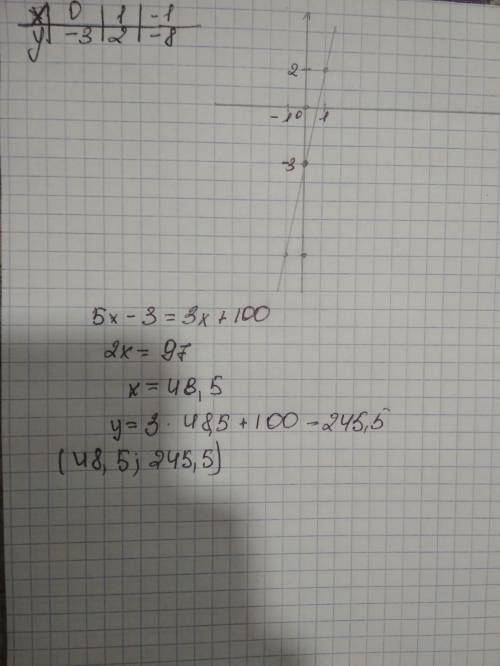 x | 0 | 1 | -1
y | -3 | 2 | -8
2
-1 0 1
-3
5x - 3 = 3x + 100
2x = 97
x = 48,5
y = 3 · 48,5 + 100 - 245,5
(48,5; 245,5)